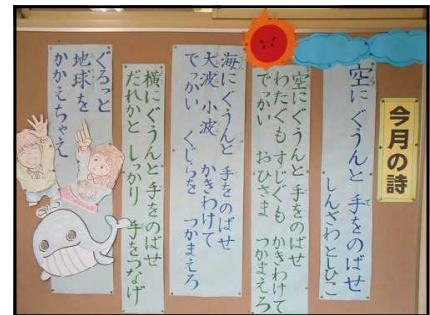 今月の詩
空にぐうんと 手をのばせ
しんざわとしひこ
空にぐうんと 手をのばせ
わたぐも すじぐも かきわけて
でっかい おひさま つかまえろ
海にぐうんと 手をのばせ
大波 小波 かきわけて
でっかい くじらを つかまえろ
横にぐうんと 手をのばせ
だれかと しっかり 手をつなげ
ぐるっと
地球を
かかえちゃえ